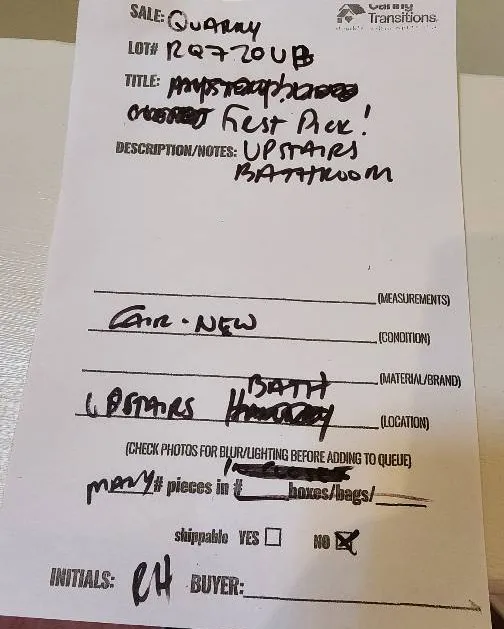 SALE: QUARRY
Caring Transitions.
LOT# RQ720UB
TITLE:
First Pick!
DESCRIPTION/NOTES: UPSTAIRS
BATHROOM
(MEASUREMENTS)
FAIR - NEW (CONDITION)
(MATERIAL/BRAND)
BATH
UPSTAIRS (LOCATION)
(CHECK PHOTOS FOR BLUR/LIGHTING BEFORE ADDING TO QUEUE)
MANY # pieces in # boxes/bags/
shippable YES NO
INITIALS: RH BUYER: